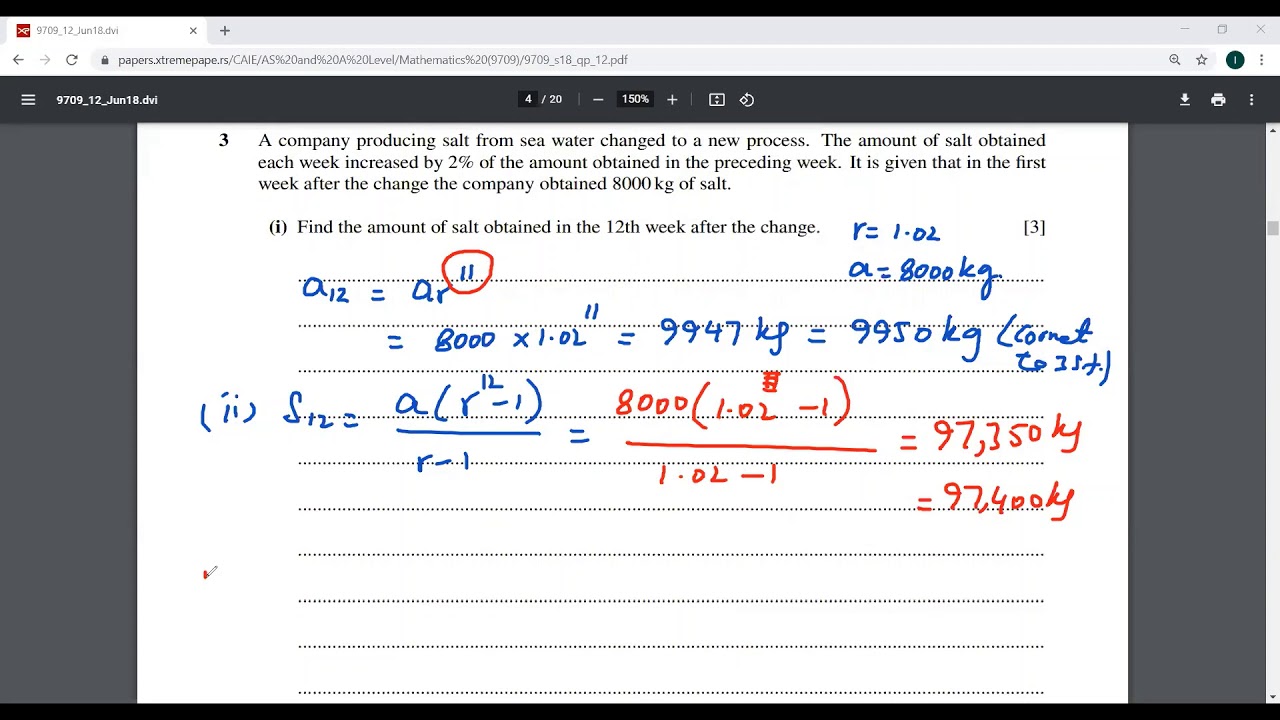 9709_12_Jun18.dvi
papers.xtremepape.rs/CAIE/AS%20and%20A%20Level/Mathematics%20(9709)/9709_s18_qp_12.pdf
I
9709_12_Jun18.dvi 4 / 20 − 150% +
3 A company producing salt from sea water changed to a new process. The amount of salt obtained
each week increased by 2% of the amount obtained in the preceding week. It is given that in the first
week after the change the company obtained 8000 kg of salt.
(i) Find the amount of salt obtained in the 12th week after the change. [3]
r = 1.02
a = 8000 kg.
a₁₂ = ar¹¹
= 8000 × 1.02¹¹ = 9947 kg = 9950 kg (correct
to 3 s.f.)
(ii) S₁₂ = a(r¹² − 1) / r − 1 = 8000(1.02 − 1) / 1.02 − 1 = 97,350 kg
= 97,400 kg